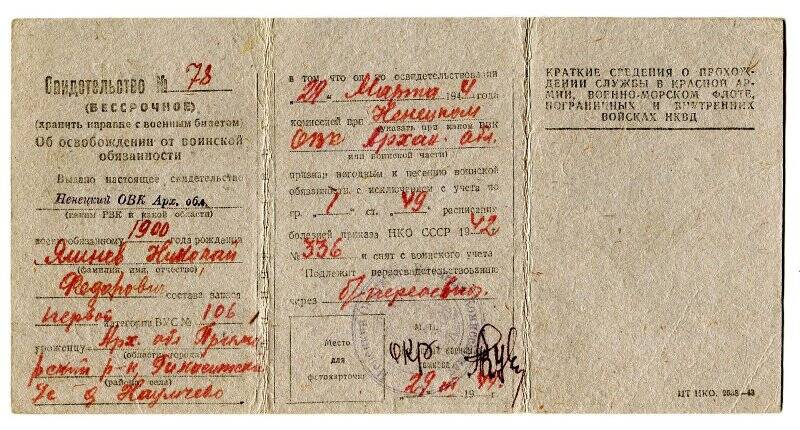 Свидетельство № 78
(БЕССРОЧНОЕ)
(хранить наравне с военным билетом)
Об освобождении от воинской
обязанности
Выдано настоящее свидетельство
Ненецкий ОВК Арх. обл.
(каким РВК и какой области)
военнообязанному 1900 года рождения
Николай
(фамилия, имя, отчество)
Федорович состава запаса
первой категории ВУС № 106
уроженцу Арх. обл.
(область, города)
р-н
(район, села)
в том, что он по освидетельствовании
"29" Марта 1944 года
комиссией при Ненецком
(указать при каком РВК
ОВК Архан. обл.
или воинской части)
признан негодным к несению воинской
обязанности с исключением с учета по
гр. 1 ст. 49 расписания
болезней приказа НКО СССР 1942
№ 336 и снят с воинского учета
Подлежит переосвидетельствованию
через
М. П.
Место
для
фотокарточки
окр
29
КРАТКИЕ СВЕДЕНИЯ О ПРОХОЖ-
ДЕНИИ СЛУЖБЫ В КРАСНОЙ АР-
МИИ, ВОЕННО-МОРСКОМ ФЛОТЕ,
ПОГРАНИЧНЫХ И ВНУТРЕННИХ
ВОЙСКАХ НКВД